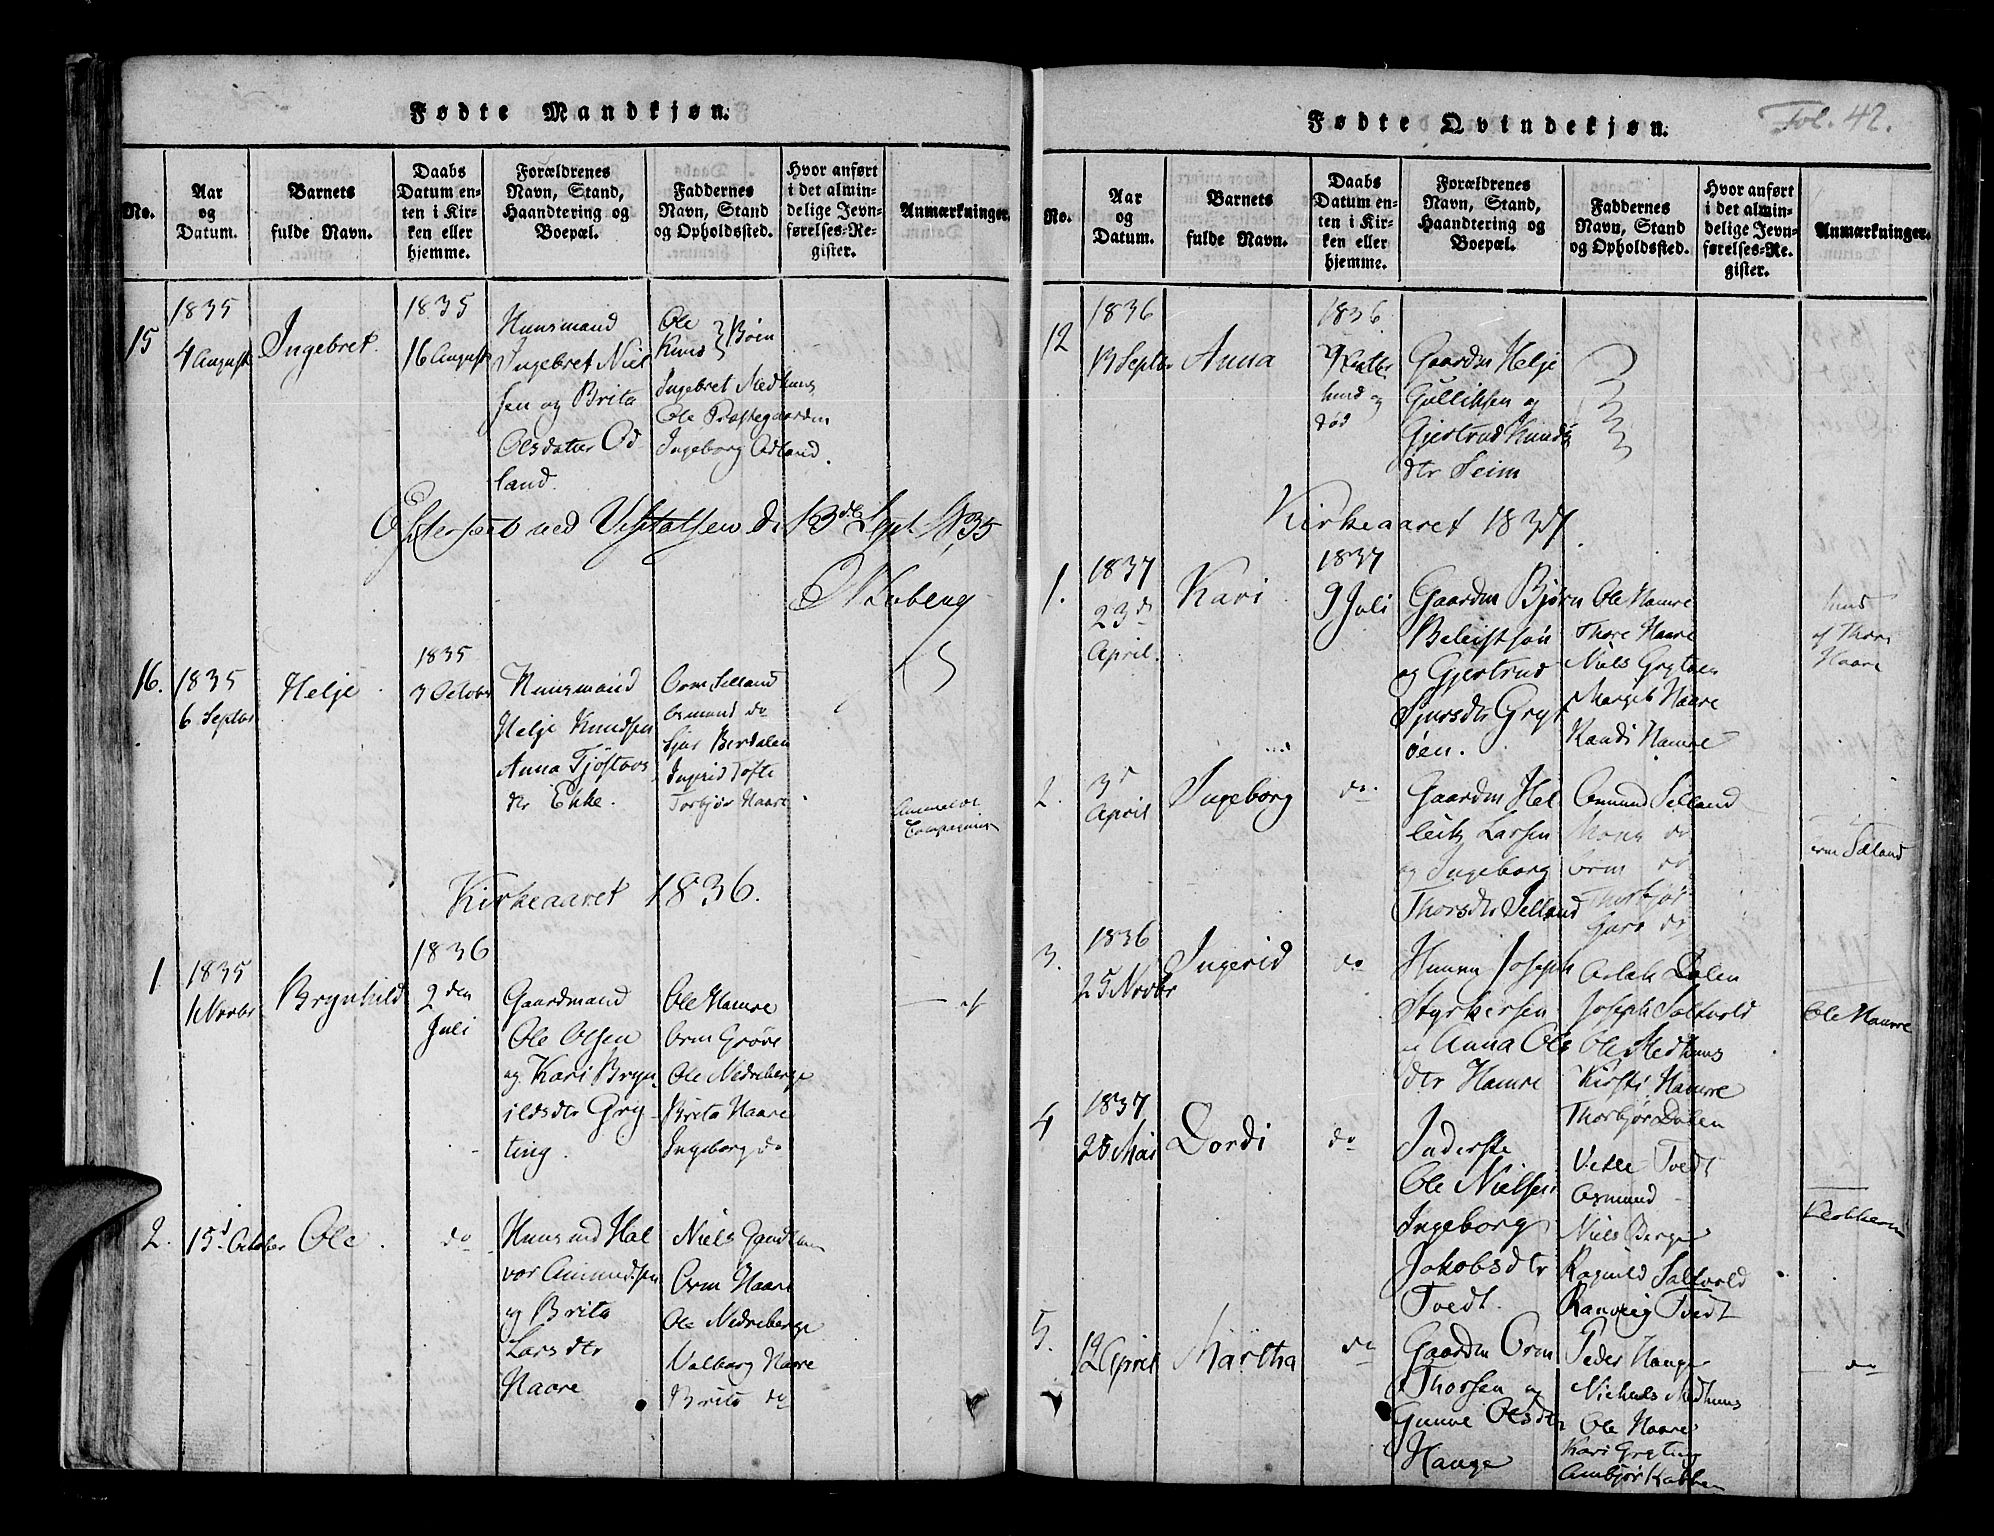 Fødte Mandkjøn.
No.
Aar
og
Datum.
Barnets
fulde Navn.
Daabs
Datum en-
ten i Kir-
ken eller
hjemme.
Forældrenes
Navn, Stand,
Haandtering og
Boepæl.
Faddernes
Navn, Stand
og Opholdssted.
Hvor anført
i det almin-
delige Jevn-
førelses-Re-
gister.
Anmærkninger.
15
1835
4 August
Ingebret.
1835
16 August
Huusmand
Ingebret Niel
sen og Brita
Olsdatter Od
land.
Ole
Knud } Bøen
Ingebret Medhuus
Ole Præstegaarden
Ingeborg Odland.
Efterseet ved Visitatsen d. 13de Sept. 1835
16.
1835
6 Septbr
Helje
1835
3 Octobr
Huusmand
Helje Knudsen
Anna Tjøstovs
dtr Ekke.
Orm Selland
Osmund do
Sjur Berdalen
Ingrid Tofte
Torbjør Haare
Kirkeaaret 1836.
1
1835
1 Novbr
Brynhild
1836
2den
Juli
Gaardmand
Ole Olsen
og Kari Bryn
ildsdtr Gry
ting.
Ole Hamre
Orm Grøve
Ole Nedreberge
Brita Haare
Ingeborg do
2.
15d October
Ole
do
Huusmd Hal
vor Amundsen
og Brita
Larsdtr
Haare
Niels
Orm Haare
Ole Nedreberge
Valborg Haare
Brita do
Fødte Qvindekjøn.
Fol. 42.
No.
Aar
og
Datum.
Barnets
fulde Navn.
Daabs
Datum en-
ten i Kir-
ken eller
hjemme.
Forældrenes
Navn, Stand,
Haandtering og
Boepæl.
Faddernes
Navn, Stand
og Opholdssted.
Hvor anført
i det almin-
delige Jevn-
førelses-Re-
gister.
Anmærkninger.
12
1836
13 Septbr
Anna
1836
og
død
Gaardm Helje
Gulliksen og
Gjertrud Knuds
dtr Seim
Kirkeaaret 1837.
1.
1837
23d
April.
Kari
1837
9 Juli
Gaardm Bjørn
Beleistsøn
og Gjertrud
Sjursdtr Gryt
øen.
Ole Hamre
Thore Haare
Niels Grytøen
Margit Haare
Randi Hamre
Knud
af Thore
Haare
2.
3d
April
Ingeborg
do.
Gaardm Hel
leik Larsen
og Ingeborg
Thorsdtr Selland
Osmund Selland
do
Orm do
Thorbjør
Guro do
orm Selland
3.
1836
25 Novbr
Ingerid
do
Huusm Joseph
Styrkersen
og Anna Ols
dtr Hamre
Aslak Dalen
Joseph Saltvold
Ole Medhuus
Kirsti Hamre
Thorbjør Dalen
Ole Haare
4
1837
25 Mai
Dordi
do
Inderste
Ole Nielsen
Ingeborg
Jakobsdtr
Tvedt.
Vetle Tvedt
Osmund
Niels Berge
Ragnild Saltvold
Ranveig Tvedt
Klokkeren
5.
12 April
Märtha
do
Gaardm Orm
Thorsen og
Gunve Olsdtr
Hauge
Peder Hauge
Nichels Medhuus
Ole Haare
Kari Gryting
Ambjør
do